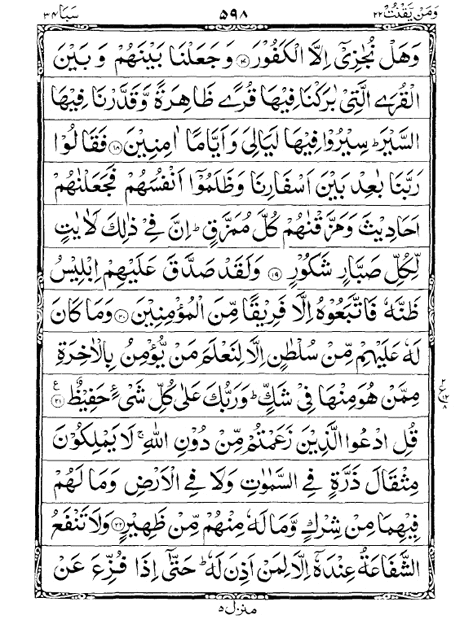 وَمَنْ يَّقْنُتْ ٢٢ ٥٩٨ سَبَا ٣٤
وَهَلْ نُجٰزِيْۤ اِلَّا الْكَفُوْرَ ۝١٧ وَجَعَلْنَا بَيْنَهُمْ وَبَيْنَ
الْقُرَى الَّتِيْ بٰرَكْنَا فِيْهَا قُرًى ظَاهِرَةً وَّقَدَّرْنَا فِيْهَا
السَّيْرَ ؕ سِيْرُوْا فِيْهَا لَيَالِيَ وَاَيَّامًا اٰمِنِيْنَ ۝١٨ فَقَالُوْا
رَبَّنَا بٰعِدْ بَيْنَ اَسْفَارِنَا وَظَلَمُوْۤا اَنْفُسَهُمْ فَجَعَلْنٰهُمْ
اَحَادِيْثَ وَمَزَّقْنٰهُمْ كُلَّ مُمَزَّقٍ ؕ اِنَّ فِيْ ذٰلِكَ لَاٰيٰتٍ
لِّكُلِّ صَبَّارٍ شَكُوْرٍ ۝١٩ وَلَقَدْ صَدَّقَ عَلَيْهِمْ اِبْلِيْسُ
ظَنَّهٗ فَاتَّبَعُوْهُ اِلَّا فَرِيْقًا مِّنَ الْمُؤْمِنِيْنَ ۝٢٠ وَمَا كَانَ
لَهٗ عَلَيْهِمْ مِّنْ سُلْطٰنٍ اِلَّا لِنَعْلَمَ مَنْ يُّؤْمِنُ بِالْاٰخِرَةِ
مِمَّنْ هُوَ مِنْهَا فِيْ شَكٍّ ؕ وَرَبُّكَ عَلٰى كُلِّ شَيْءٍ حَفِيْظٌ ۝٢١ ع
قُلِ ادْعُوا الَّذِيْنَ زَعَمْتُمْ مِّنْ دُوْنِ اللّٰهِ ۚ لَا يَمْلِكُوْنَ
مِثْقَالَ ذَرَّةٍ فِي السَّمٰوٰتِ وَلَا فِي الْاَرْضِ وَمَا لَهُمْ
فِيْهِمَا مِنْ شِرْكٍ وَّمَا لَهٗ مِنْهُمْ مِّنْ ظَهِيْرٍ ۝٢٢ وَلَا تَنْفَعُ
الشَّفَاعَةُ عِنْدَهٗۤ اِلَّا لِمَنْ اَذِنَ لَهٗ ؕ حَتّٰۤى اِذَا فُزِّعَ عَنْ
منزل ٥